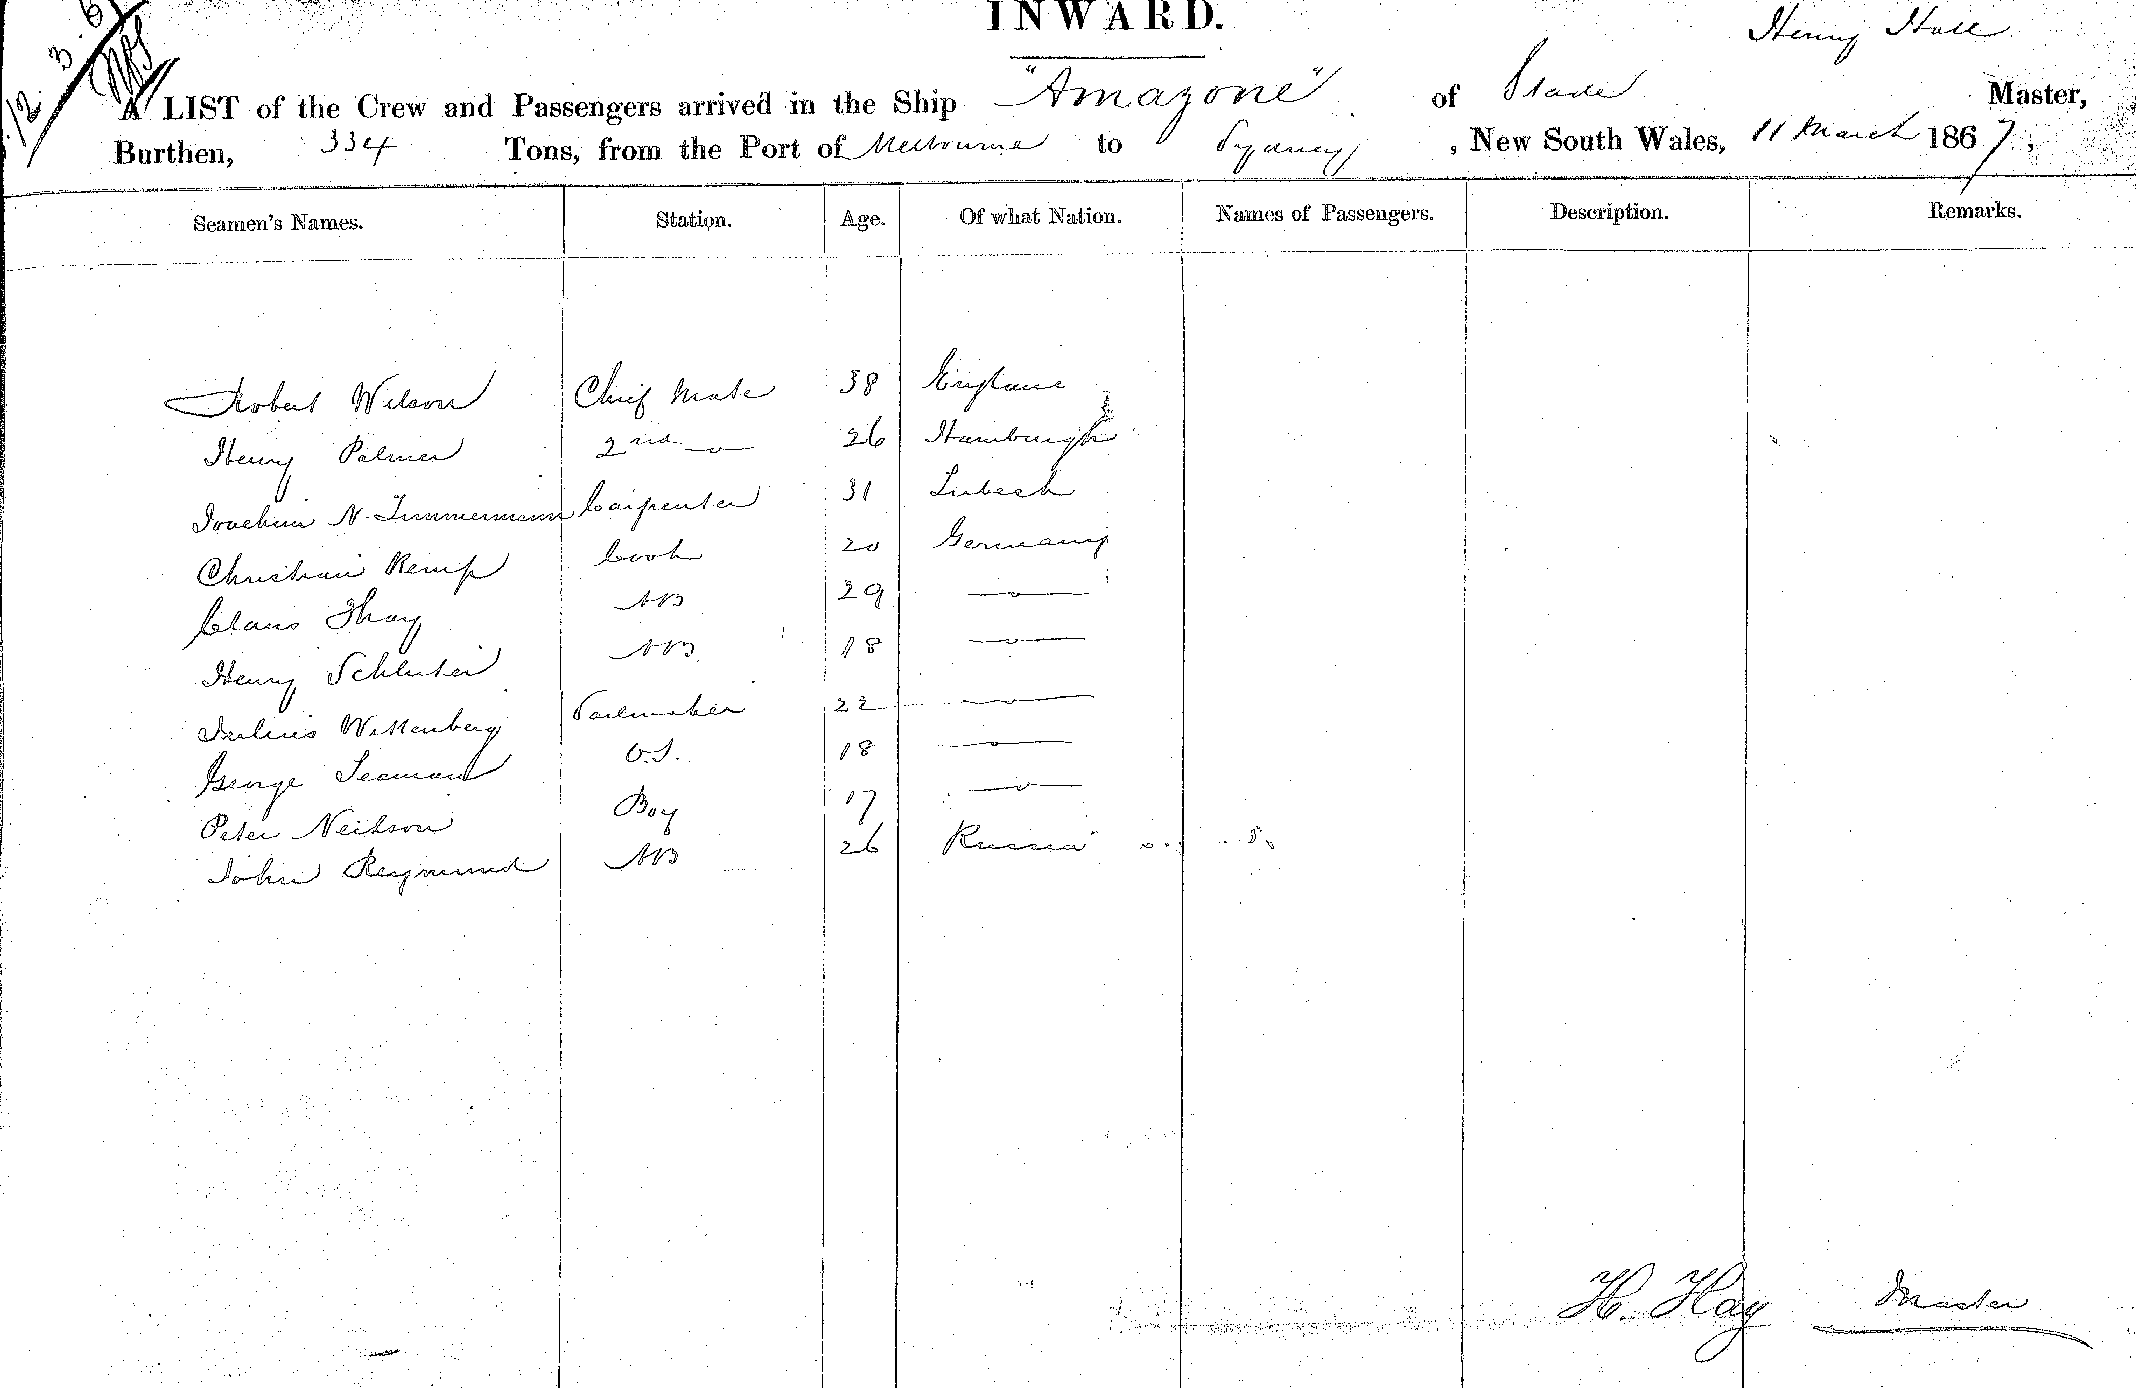 INWARD.
12.3.6
Henry Hall
A LIST of the Crew and Passengers arrived in the Ship "Amazone" of Stade Master,
Burthen, 334 Tons, from the Port of Melbourne to Sydney, New South Wales, 11 March 1867,
Seamen's Names. Station. Age. Of what Nation. Names of Passengers. Description. Remarks.
Robert Wilson Chief Mate 38 England
Henry Palmer 2nd —〃— 26 Hamburgh
Joachim N. Timmermann Carpenter 31 Lubeck
Christian Kemp Cook 20 Germany
Claus Thay AB 29 —〃—
Henry Schluter AB 18 —〃—
Julius Wittenberg Sailmaker 22 —〃—
George Seaman O.S. 18 —〃—
Peter Neilson Boy 17 —〃—
John Reymund AB 26 Russia
H. Hay Master